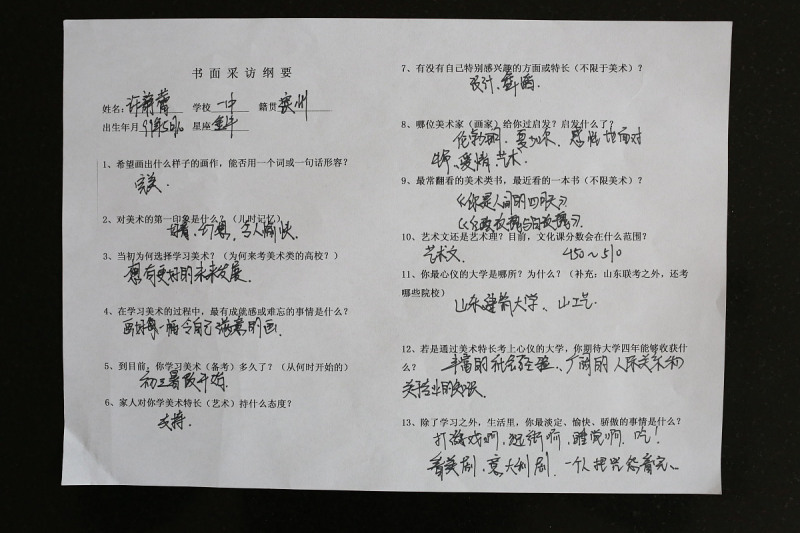 书面采访纲要
姓名：许蔚蕾 学校 一中 籍贯 滨州
出生年月 星座 金牛
1、希望画出什么样子的画作，能否用一个词或一句话形容？
完美.
2、对美术的第一印象是什么？（儿时记忆）
好看、幻想、令人愉快.
3、当初为何选择学习美术？（为何来考美术类的高校？）
想有更好的未来发展.
4、在学习美术的过程中，最有成就感或难忘的事情是什么？
画好每一幅令自己满意的画.
5、到目前，你学习美术（备考）多久了？（从何时开始的）
初三暑假开始.
6、家人对你学美术特长（艺术）持什么态度？
支持.
7、有没有自己特别感兴趣的方面或特长（不限于美术）？
设计、舞蹈.
8、哪位美术家（画家）给你过启发？启发什么了？
伦勃朗、夏加尔、感性地面对
生命、爱情、艺术.
9、最常翻看的美术类书，最近看的一本书（不限美术）？
《你是人间的四月天》
《红玫瑰与白玫瑰》.
10、艺术文还是艺术理？目前，文化课分数会在什么范围？
艺术文. 450～510
11、你最心仪的大学是哪所？为什么？（补充：山东联考之外，还考
哪些院校）
山东建筑大学、山工艺.
12、若是通过美术特长考上心仪的大学，你期待大学四年能够收获什
么？ 丰富的社会经验、广阔的人际关系和
关于专业的知识.
13、除了学习之外，生活里，你最淡定、愉快、骄傲的事情是什么？
打游戏啊，逛街啊，睡觉啊、吃！
看美剧、意大利剧、一个人把咒怨看完..